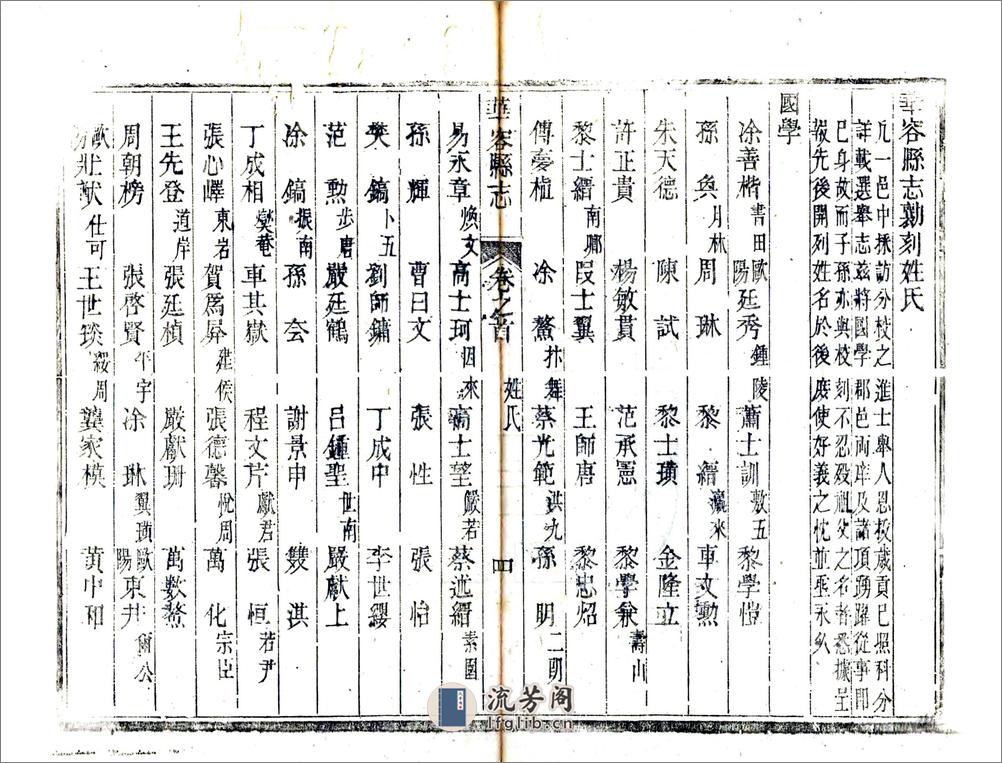 華容縣志勷刻姓氏
凡一邑中採訪分校之進士舉人恩拔歲貢已照科分
詳載選舉志茲將國學郡邑兩庠及諸項踴躍從事即
已身故而子孫亦與校刻不忍殁祖父之名者悉據呈
報先後開列姓名於後庶使好義之忱並垂永久
國學
凃善楷 書田 歐陽廷秀 鍾陵 蕭士訓 敷五 黎學愷
孫奐 月林 周琳 黎縉 瀛來 車文勲
朱天德 陳試 黎士瓊 金隆立
許正貴 楊敏貫 范承憲 黎學兼 壽山
黎士縉 南鄉 段士翼 王師唐 黎忠炤
傅夢植 凃鰲 抃舞 蔡光範 洪九 孫明 二朗
華容縣志 卷之首 姓氏 四
易永章 煥文 高士珂 因來 高士堃 嚴若 蔡述縉 素圃
孫輝 曹曰文 張性 張怡
樊鎬 卜五 劉師鏞 丁成中 李世纓
范勲 步唐 嚴廷鶴 呂鍾聖 世南 嚴獻上
凃鎬 振南 孫枩 謝景申 雙淇
丁成相 燮菴 車其嶽 程文芹 獻君 張恒 若尹
張心嶧 東岩 賀爲昇 建侯 張德馨 悅周 萬化 宗臣
王先登 道岸 張廷楨 嚴獻珊 萬數鰲
周朝楞 張啓賢 午宇 凃琳 翼瑣 歐陽東井 爾公
歐陽壯猷 仕可 王世琰 綏周 龔家模 黄中和
流芳阁
lfglib.cn